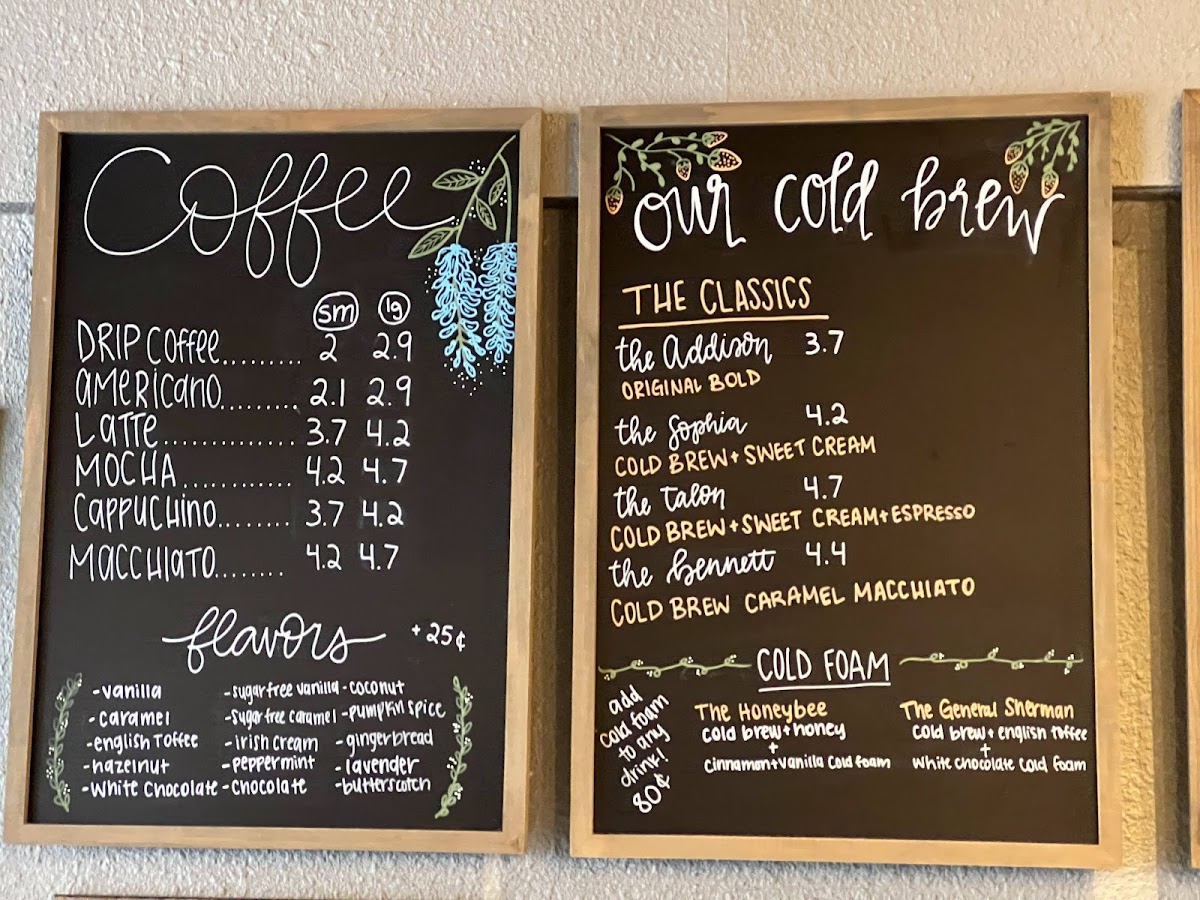 Coffee
sm lg
DRIP COFFEE......... 2 2.9
AMERICANO......... 2.1 2.9
LATTE............. 3.7 4.2
MOCHA............ 4.2 4.7
CAPPUCHINO........ 3.7 4.2
MACCHIATO........ 4.2 4.7
flavors +25¢
-vanilla
-caramel
-english Toffee
-hazelnut
-white chocolate
-sugar free vanilla
-sugar free caramel
-irish cream
-peppermint
-chocolate
-coconut
-pumpkin spice
-gingerbread
-lavender
-butterscotch
our cold brew
THE CLASSICS
the Addison 3.7
ORIGINAL BOLD
the Sophia 4.2
COLD BREW + SWEET CREAM
the Talon 4.7
COLD BREW + SWEET CREAM + ESPRESSO
the bennett 4.4
COLD BREW CARAMEL MACCHIATO
COLD FOAM
add
cold foam
to any
drink!
80¢
The Honeybee
cold brew + honey
+
cinnamon + vanilla cold foam
The General Sherman
cold brew + english toffee
+
white chocolate cold foam